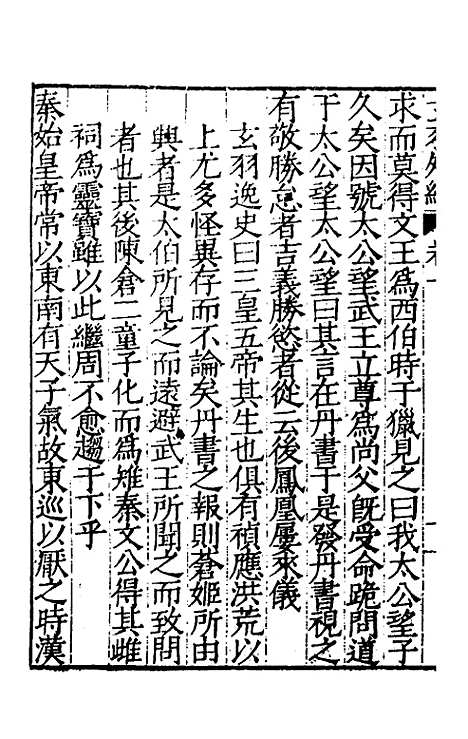 求而莫得文王爲西伯時于獵見之曰我太公望子
久矣因號太公望武王立尊爲尚父旣受命跪問道
于太公望太公望曰其言在丹書于是發丹書視之
有敬勝怠者吉義勝慾者從云後鳳凰屢來儀
玄羽逸史曰三皇五帝其生也俱有禎應洪荒以
上尤多怪異存而不論矣丹書之報則蒼姬所由
興者是太伯所見之而遠避武王所聞之而致問
者也其後陳倉二童子化而爲雉秦文公得其雌
祠爲靈寶雖以此繼周不愈趨于下乎
秦始皇帝常以東南有天子氣故東巡以厭之時漢